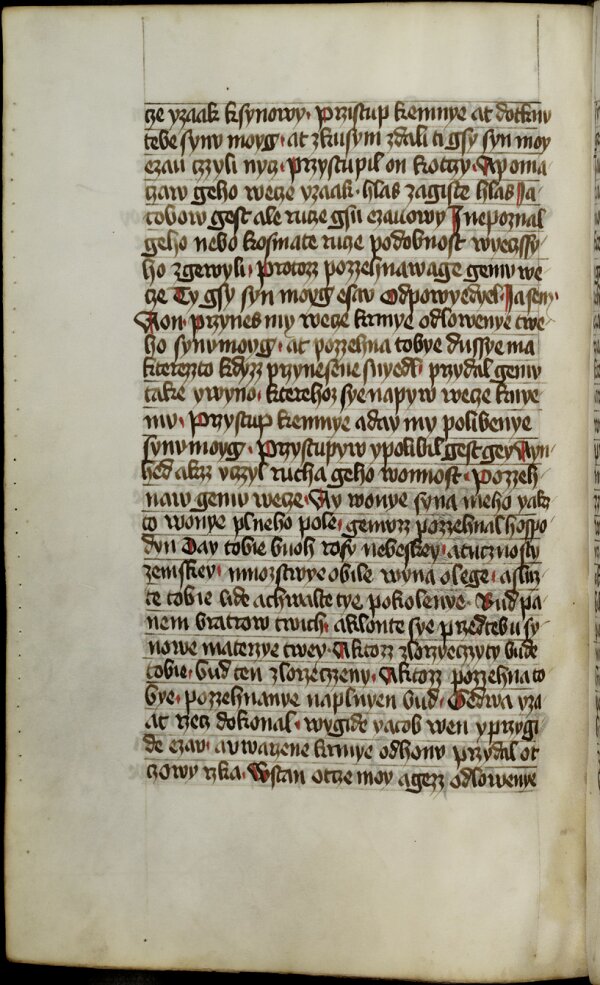 cze yzaak ksynowy · Przistup kemnye at dotknu
tebe synu moyg · at zkusym zdali ti gsy syn moy
ezau czyli nycz · Przystupil on kotczy · Ay oma
czaw geho wecze yzaak · hlas zagiste hlas Ja
cobow gest ale rucze gsu ezauowy J nepoznal
geho nebo kosmate rucze podobnost wyeczssy
ho zgewyli · Protozz pozzehnawage gemu we
cze Ty gsy syn moyg esau Odpowyedyel · Ja sem
Aon · Przynes my wecze krmye odlowenye twe
ho synu moyg · at pozzehna tobye dussye ma
kterezzto kdyzz przynesene snyedl · przydal gemu
take ywyno · kterehoz sye napyw wecze knye
mu · Przystup kemnye aday my polibenye
synu moyg · Przystupyw ypolibil gest gey Ayn
hed akzz yczyl rucha geho wonnost · Pozzeh
naw gemu wecze · Ay wonye syna meho yakz
to wonye plneho pole · gemuzz pozzehnal hospo
dyn Day tobie buoh rosy nebeskey · atucznosty
zemskey · mnozstwye obile wyna olege · asluz
te tobie lide achwalte tye pokolenye · Bud pa
nem bratrow twich · aklonte sye przedtebu sy
nowe materzye twey · Aktozz zlorzyeczyty bude
tobie · bud ten zlorzeczeny · Aktozz pozzehna to
bye · pozzehnanye naplnyen bud · Gedwa yza
ak rzecz dokonal · wygide yacob wen yprzygi
de ezau · auwarzene krmye odhony przydal ot
czowy rzka · Wstan otcze moy agezz odlowenye